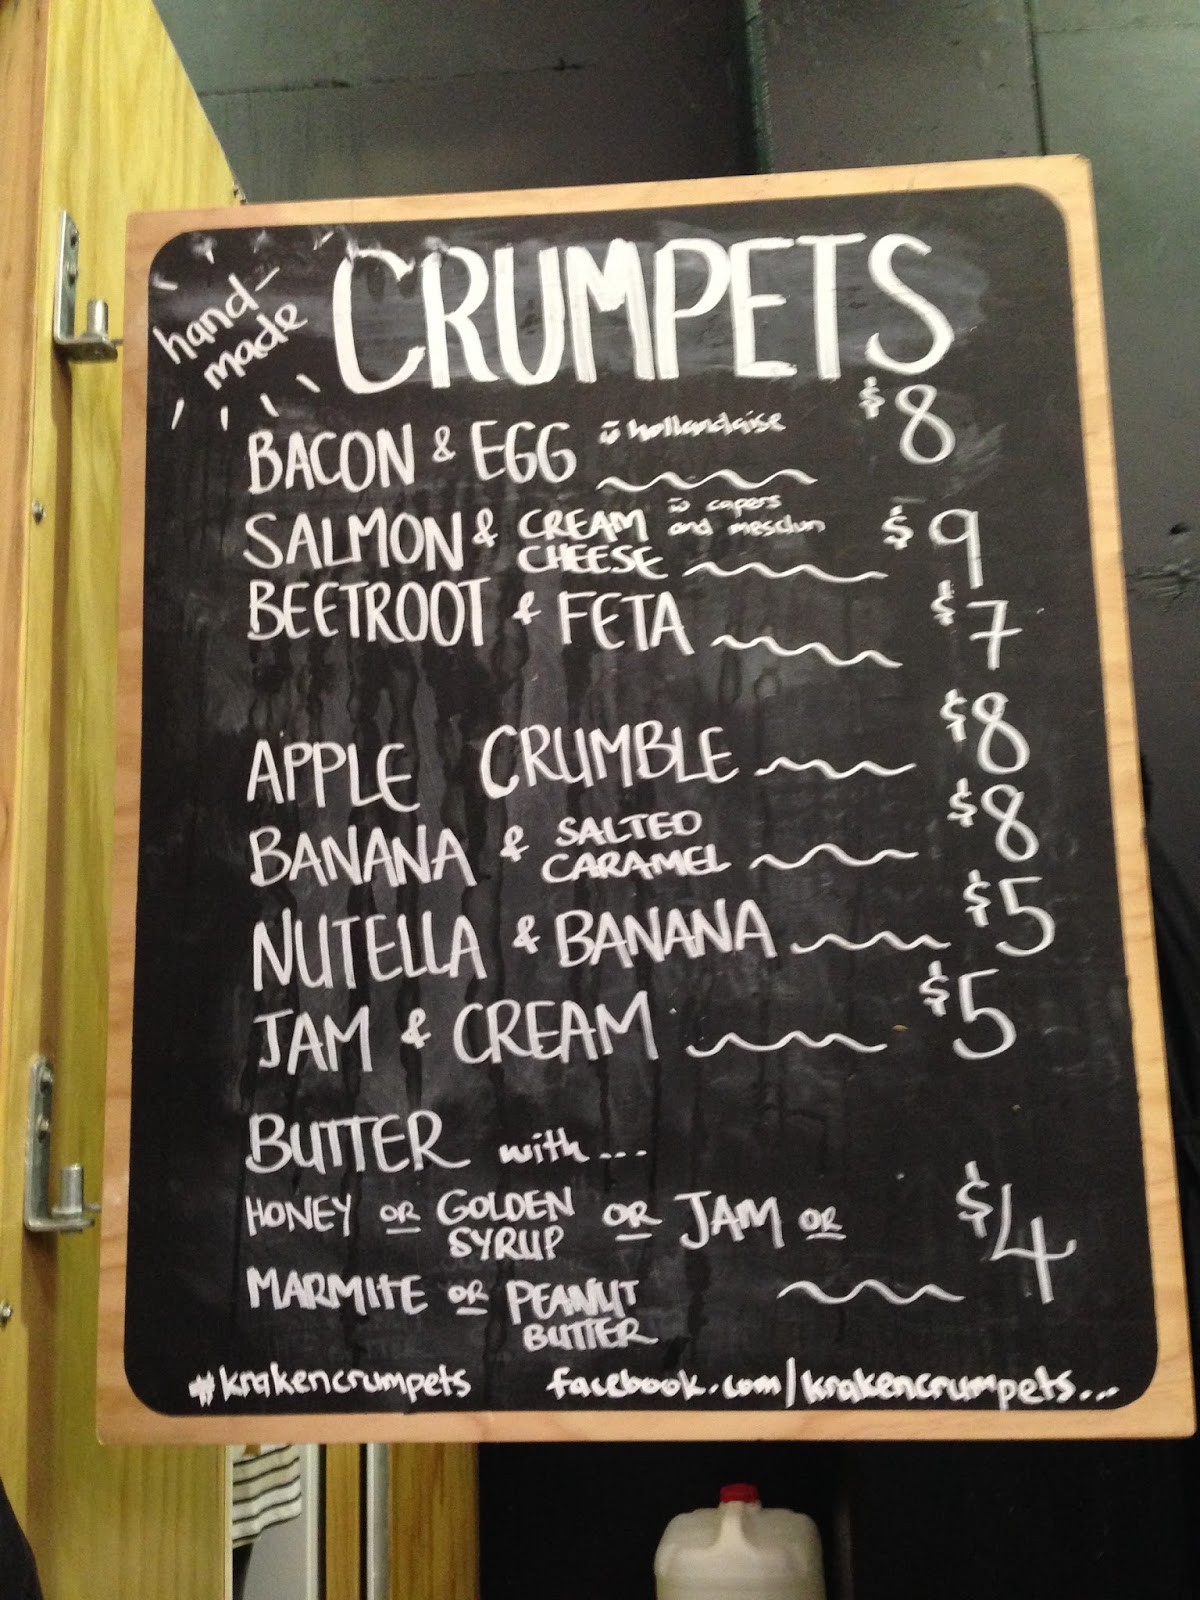 hand-
made
CRUMPETS
BACON & EGG w hollandaise $8
SALMON & CREAM CHEESE w capers and mesclun $9
BEETROOT & FETA $7
APPLE CRUMBLE $8
BANANA & SALTED CARAMEL $8
NUTELLA & BANANA $5
JAM & CREAM $5
BUTTER with...
HONEY OR GOLDEN SYRUP OR JAM OR
MARMITE OR PEANUT BUTTER $4
#krakencrumpets facebook.com/krakencrumpets...